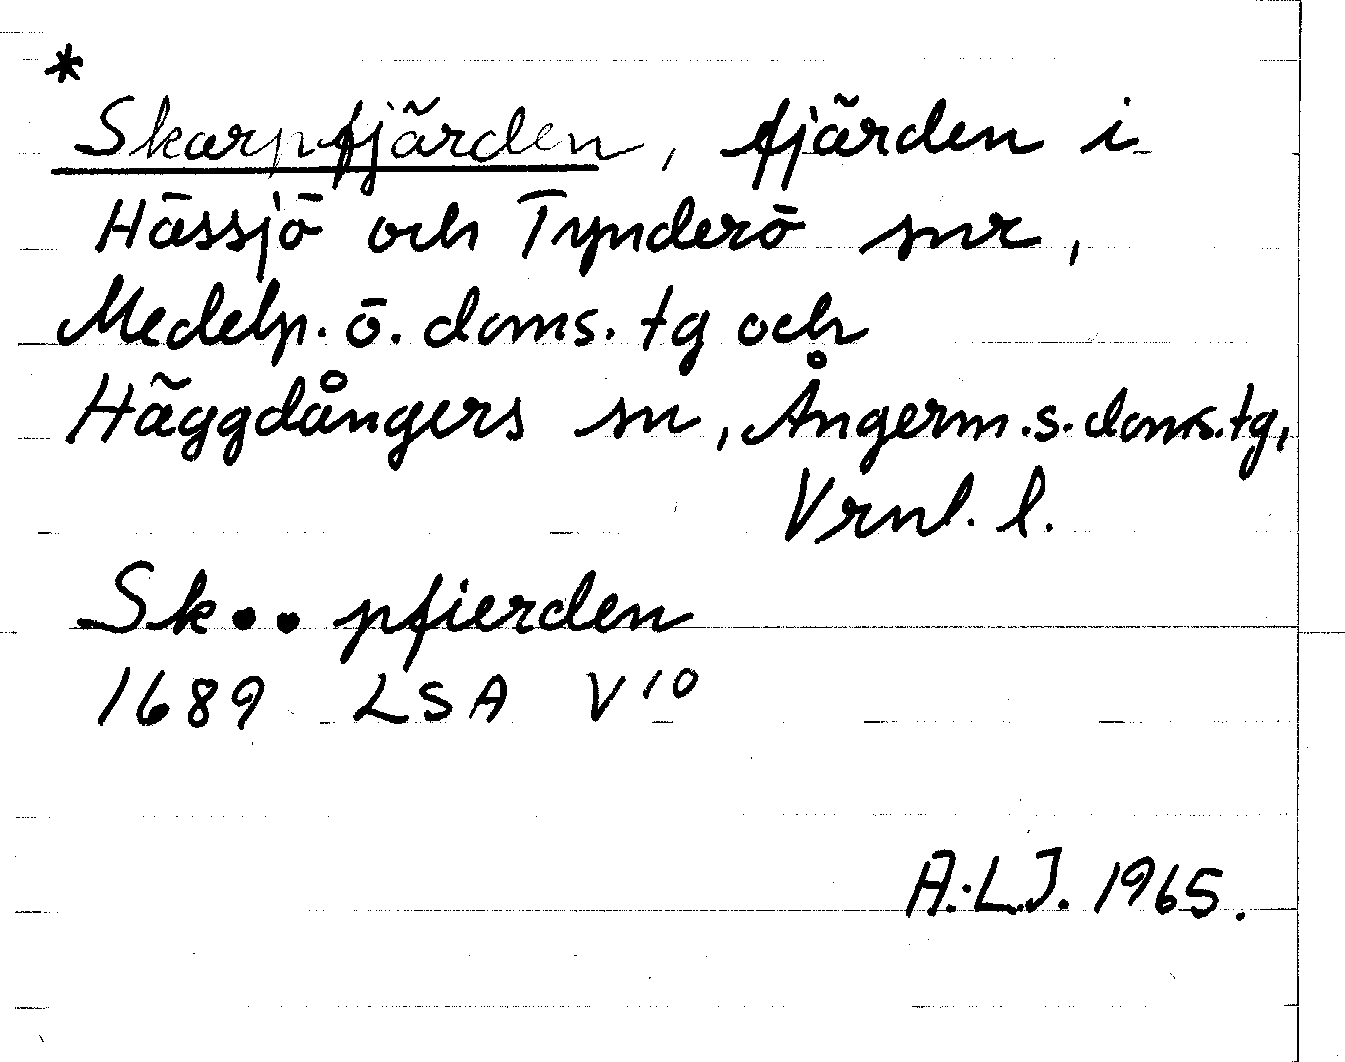 *
Skarpfjärden, fjärden i
Hässjö och Tynderö snr,
Medelp. ö. doms. tg och
Häggdångers sn, Ångerm. s. doms. tg,
Vrnl. l.
Sk.. pfierden
1689 LSA V10
A.-L.J. 1965.